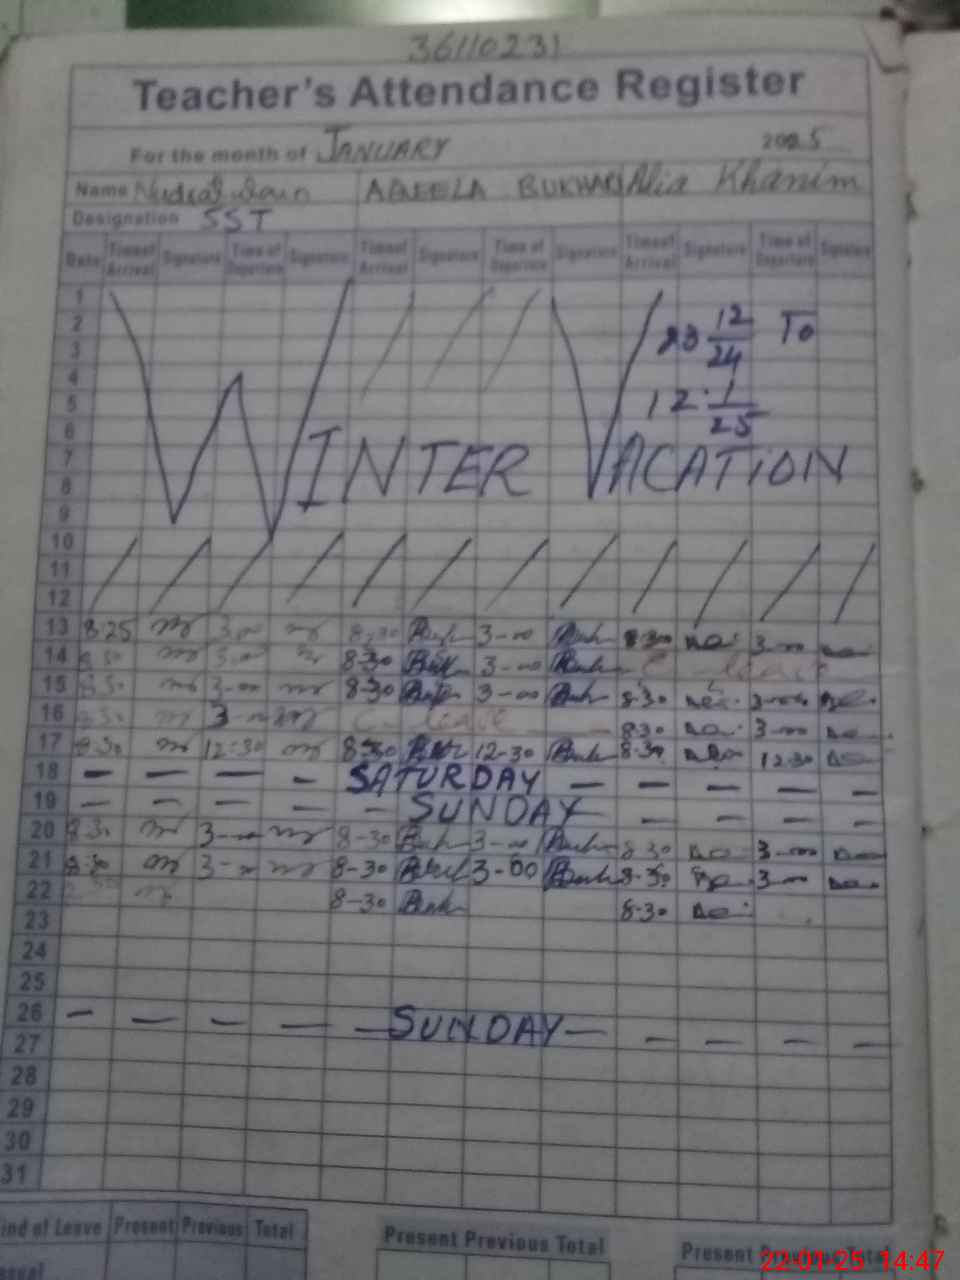 36110231
Teacher's Attendance Register
For the month of JANUARY 2025
Name AQEELA BUKHARI Alia Khanim
Designation SST
Date Time of Arrival Signature Time of Departure Signature Time of Arrival Signature Time of Departure Signature Time of Arrival Signature Time of Departure Signature
1
2 23 12/24 To
3
4
5 12 1/25
6
7 WINTER VACATION
8
9
10
11
12
13 8:25 3-00 8-30 3-00 8:30 3-00
14 3-00 8-30 3-00 C-leave
15 8-30 3-00 8-30 3-00 8-30 3-00
16 8-30 3- C-leave 8-30 3-00
17 8-30 12:30 8-30 12-30 8-30 12-30
18 — — — — SATURDAY — — — — —
19 — — — — — SUNDAY — — — —
20 8-30 3-00 8-30 3-00 8-30 3-00
21 8-30 3-00 8-30 3-00 8-30 3-00
22 8-30 8-30
23
24
25
26 — — — — — SUNDAY — — — — —
27
28
29
30
31
ind of Leave Present Previous Total Present Previous Total Present Previous Total
22-01-25 14:47